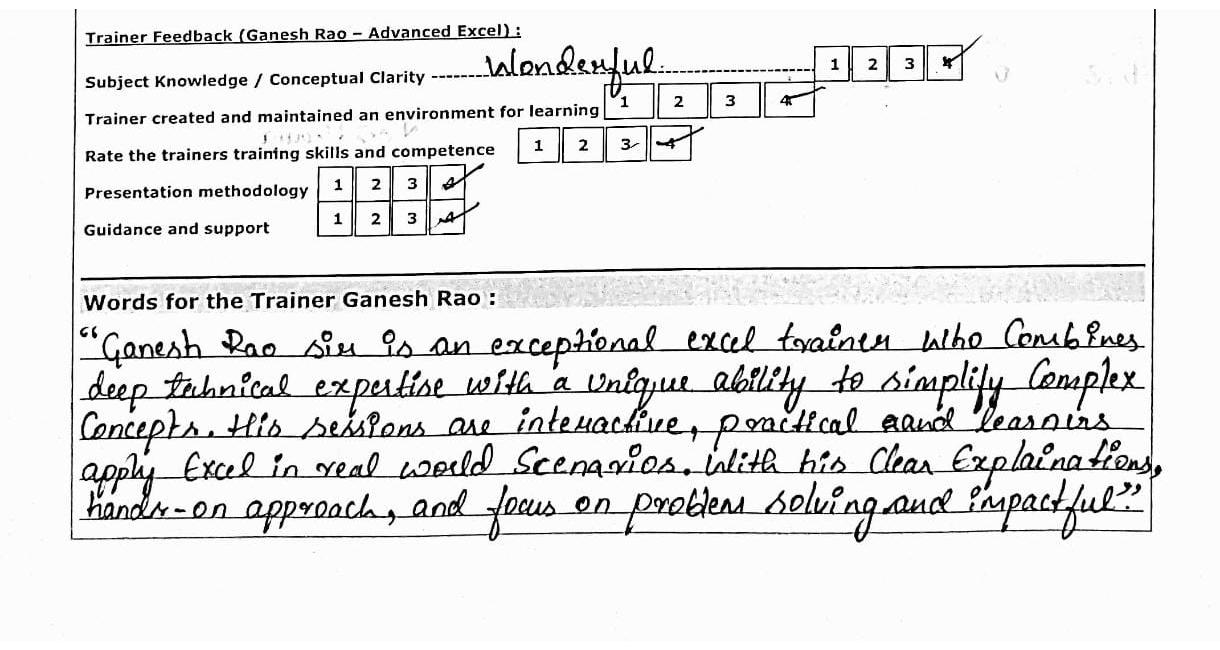 Trainer Feedback (Ganesh Rao – Advanced Excel) :
Subject Knowledge / Conceptual Clarity -------Wonderful.------------------- 1 2 3 4
Trainer created and maintained an environment for learning 1 2 3 4
Rate the trainers training skills and competence 1 2 3 4
Presentation methodology 1 2 3 4
Guidance and support 1 2 3 4
Words for the Trainer Ganesh Rao :
"Ganesh Rao sir is an exceptional excel trainer who Combines
deep technical expertise with a unique ability to simplify Complex
Concepts. His sessions are interactive, practical aand learnins
apply Excel in real world Scenarios. With his Clear Explainations,
hands-on approach, and focus on problem solving and impactful"